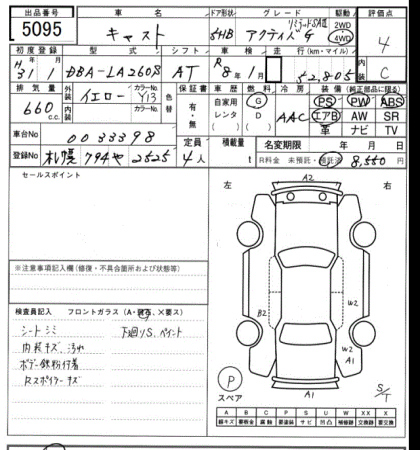 出品番号 車名 ドア形状 グレード 駆動 評価点
5095 キャスト 5HB アクティバ G リミテッドSAⅢ 2WD 4WD 4
初度登録 型式 シフト 車検 走行(km・マイル) 内装
H31/1 DBA-LA260S AT R8年1月 52,805 C
排気量 外装色 カラーNo. 色替 保証書 車歴 燃料 冷房 装備(純正部品に限る)
660c.c. イエロー Y13 有・無 自家用 レンタ G D AAC PS PW ABS
エアB AW SR
革 ナビ TV
車台No 0033398 定員 積載量 名変期限 年 月 日
登録No 札幌 794や 2525 4人 t R料金 未預託・預託済 8,550円
セールスポイント
左 右
A2
※注意事項記入欄(修復・不具合箇所および状態等)
検査員記入 フロントガラス(A・飛石、×要ス)
シートシミ 下廻りS、ペイント
内装キズ、汚れ
ボデー鉄粉付着
Rスポイラーキズ
B2 W2
W2
A1
A1
P
スペア
S/T
A B C P S U W X XX
線キズ 要鈑金 腐触 要塗装 サビ 凹凸 補修跡 交換済 要交換